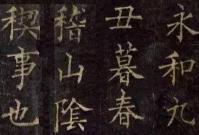 永和九
丑暮春
稽山陰
稧事也